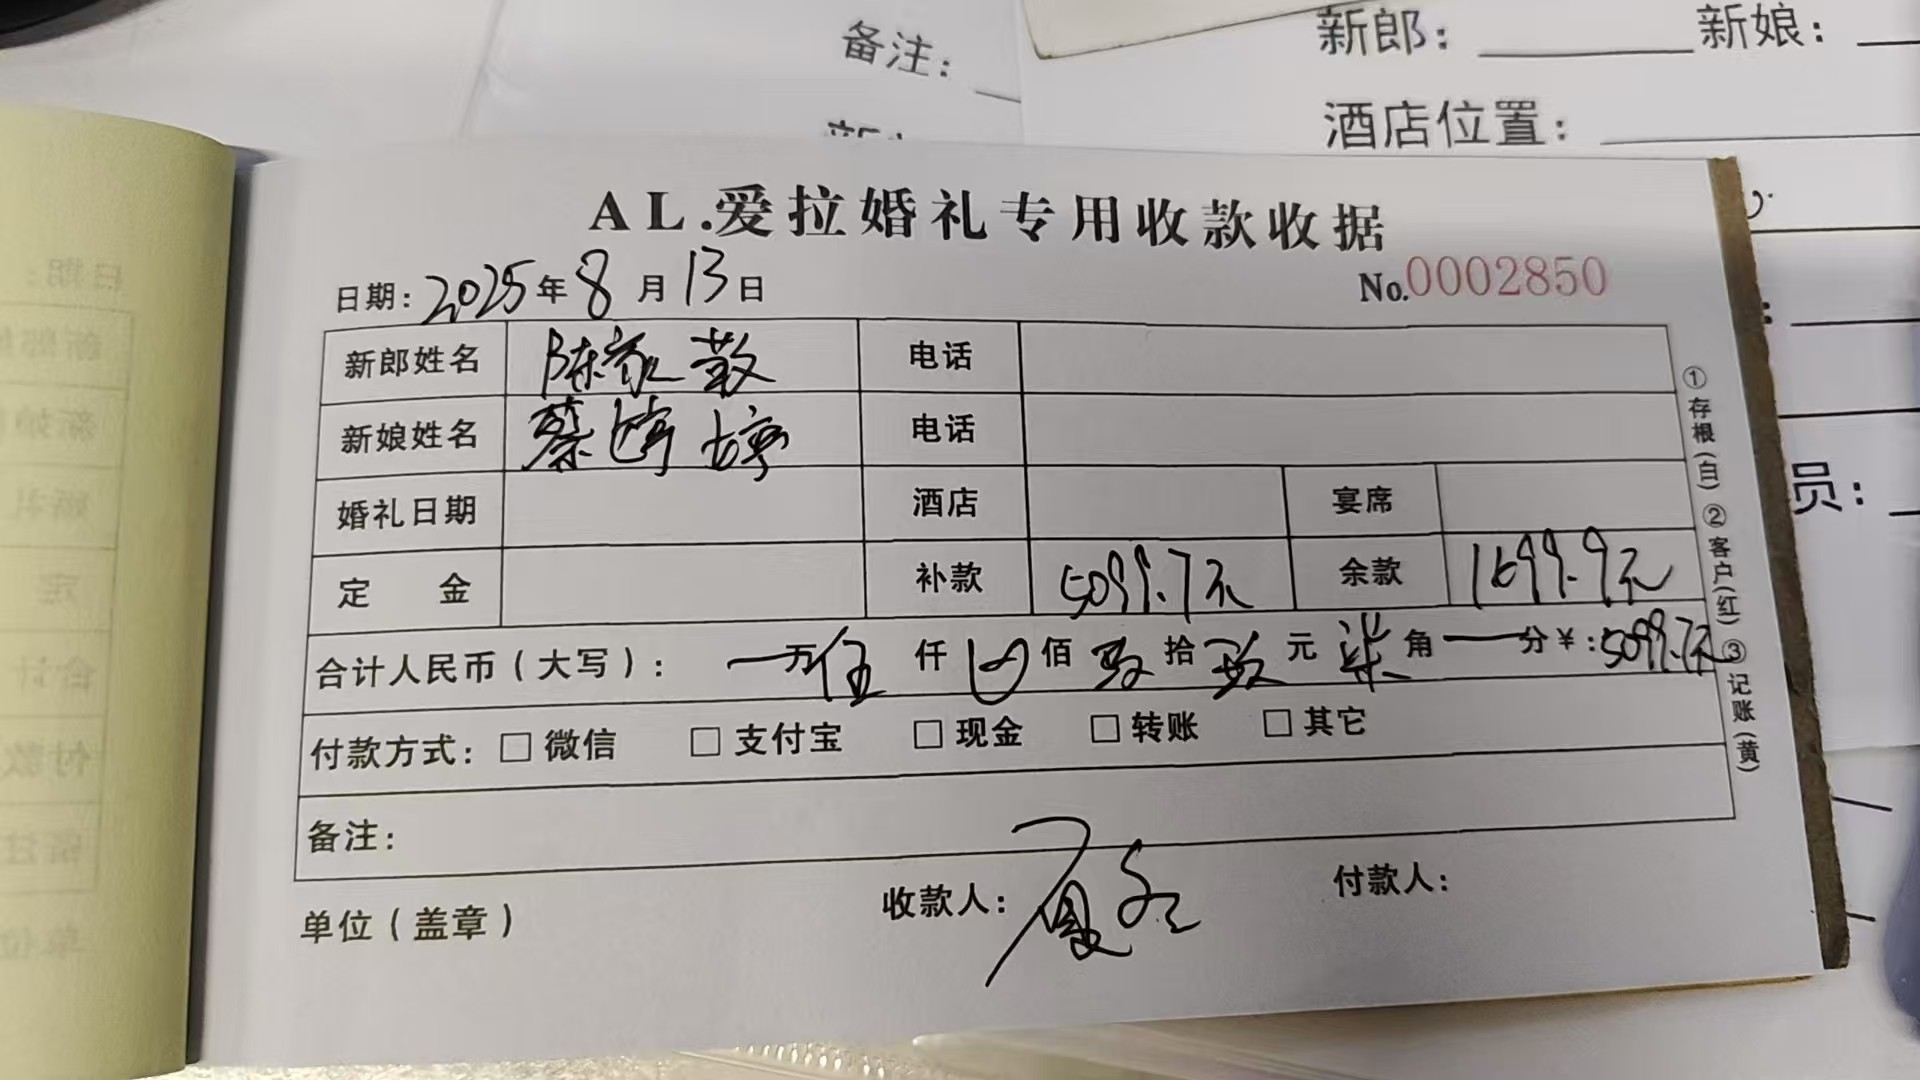 备注：
新郎： 新娘：
酒店位置：
员：
AL.爱拉婚礼专用收款收据
日期：2025年8月13日 No.0002850
新郎姓名 陈 电话
新娘姓名 蔡婷婷 电话
婚礼日期 酒店 宴席
定 金 补款 5099.7元 余款 1699.9元
合计人民币（大写）： 一万伍仟 佰玖拾玖元柒角一分￥：5099.7元
付款方式：□微信 □支付宝 □现金 □转账 □其它
备注：
单位（盖章） 收款人： 付款人：
①存根（白）②客户（红）③记账（黄）